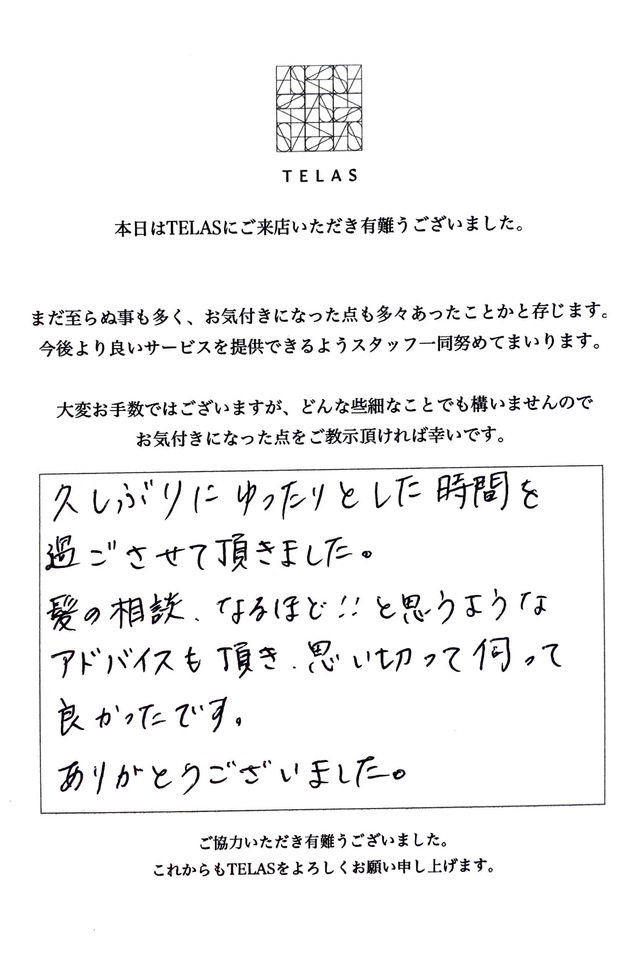 TELAS
本日はTELASにご来店いただき有難うございました。
まだ至らぬ事も多く、お気付きになった点も多々あったことかと存じます。
今後より良いサービスを提供できるようスタッフ一同努めてまいります。
大変お手数ではございますが、どんな些細なことでも構いませんので
お気付きになった点をご教示頂ければ幸いです。
久しぶりにゆったりとした時間を
過ごさせて頂きました。
髪の相談、なるほど!!と思うような
アドバイスも頂き、思い切って伺って
良かったです。
ありがとうございました。
ご協力いただき有難うございました。
これからもTELASをよろしくお願い申し上げます。